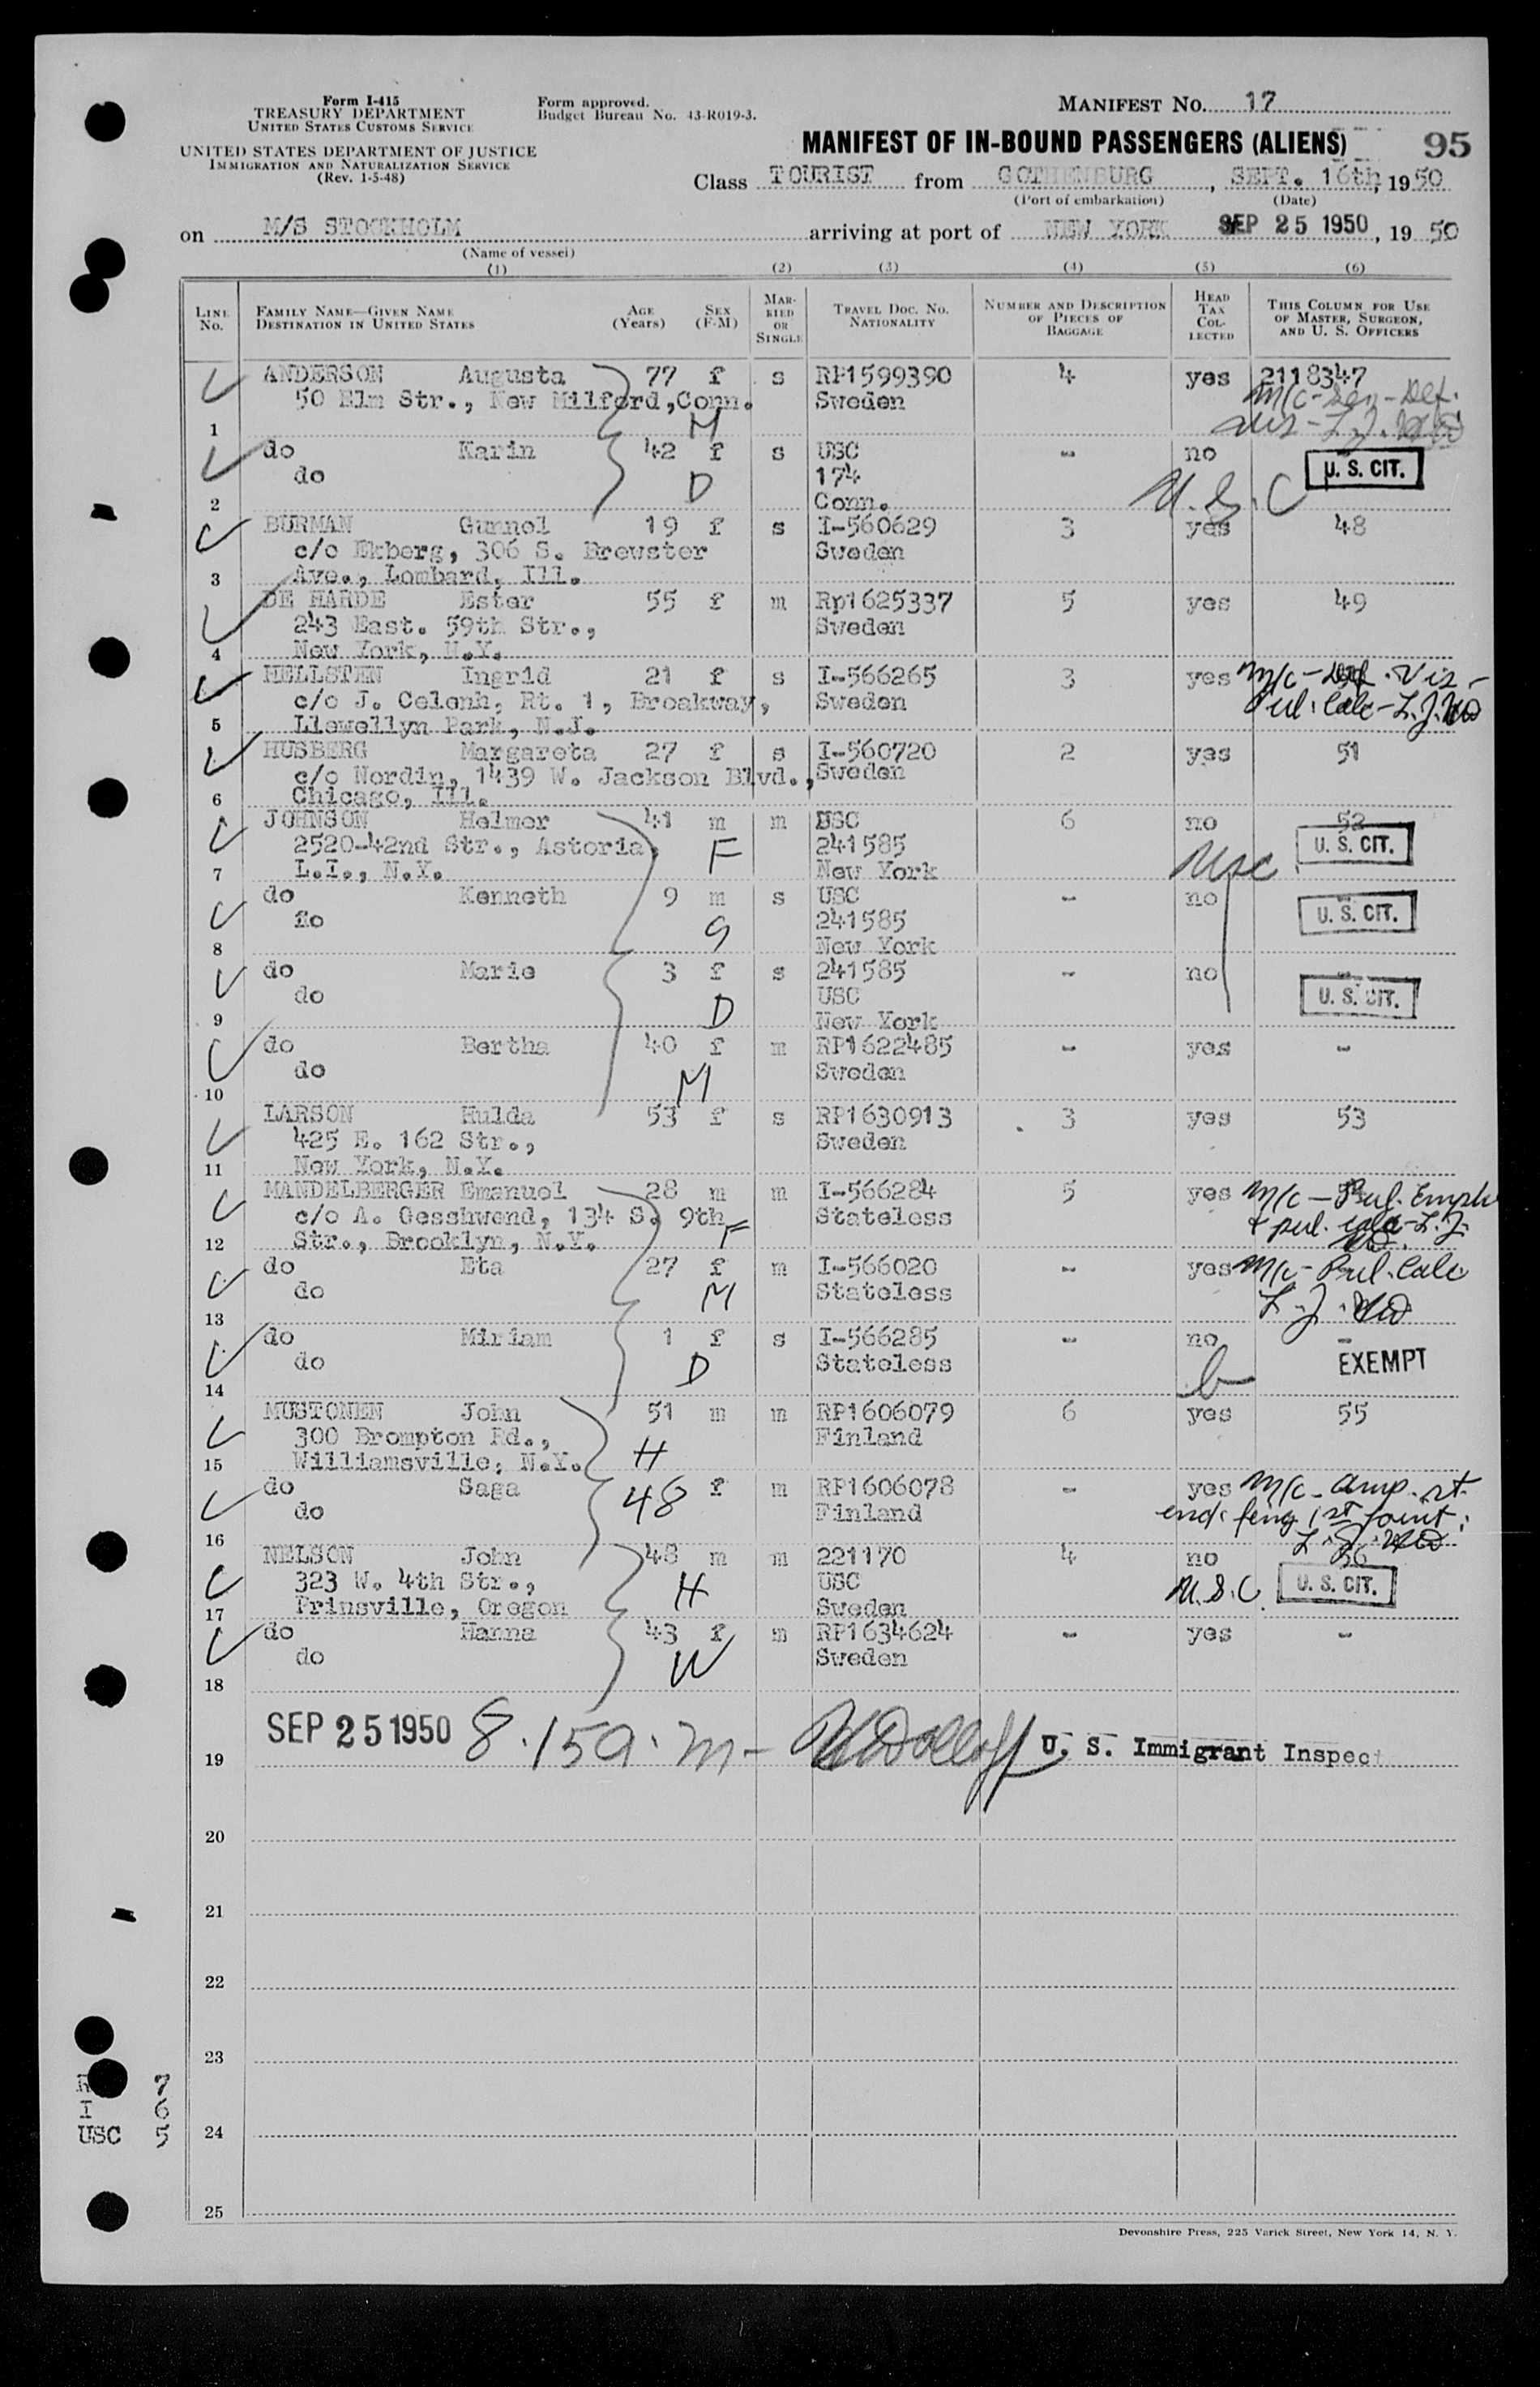 Form I-415
TREASURY DEPARTMENT
UNITED STATES CUSTOMS SERVICE
UNITED STATES DEPARTMENT OF JUSTICE
IMMIGRATION AND NATURALIZATION SERVICE
(Rev. 1-5-48)
Form approved.
Budget Bureau No. 43-R019-3.
MANIFEST NO. 17
MANIFEST OF IN-BOUND PASSENGERS (ALIENS) 95
Class TOURIST from GOTHENBURG, SEPT. 16th, 1950
(Port of embarkation) (Date)
on M/S STOCKHOLM arriving at port of NEW YORK SEP 25 1950, 19 50
(Name of vessel)
(1) (2) (3) (4) (5) (6)
LINE NO. FAMILY NAME—GIVEN NAME DESTINATION IN UNITED STATES AGE (Years) SEX (F-M) MARRIED OR SINGLE TRAVEL DOC. NO. NATIONALITY NUMBER AND DESCRIPTION OF PIECES OF BAGGAGE HEAD TAX COLLECTED THIS COLUMN FOR USE OF MASTER, SURGEON, AND U. S. OFFICERS
ANDERSON Augusta 77 f s RP1599390 4 yes 2118347
50 Elm Str., New Milford, Conn. Sweden M/c-
1 M
do Karin 42 f s USC - no
do D 174 U.S.C U. S. CIT.
2 Conn.
BURMAN Gunnel 19 f s I-560629 3 yes 48
c/o Ekberg, 306 S. Brewster Sweden
3 Ave., Lombard, Ill.
DE HARDE Ester 55 f m Rp1625337 5 yes 49
243 East. 59th Str., Sweden
4 New York, N.Y.
HELLSTEN Ingrid 21 f s I-566265 3 yes M/c - Def. Vis -
c/o J. Colenh, Rt. 1, Broakway, Sweden Pul. Calc - L.J.
5 Llewellyn Park, N.J.
HUSBERG Margareta 27 f s I-560720 2 yes 51
c/o Nordin, 1439 W. Jackson Blvd., Sweden
6 Chicago, Ill.
JOHNSON Helmer 41 m m USC 6 no 52
2520-42nd Str., Astoria, F 241585 U. S. CIT.
7 L.I., N.Y. New York usc
do Kenneth 9 m s USC - no
fo 241585 U. S. CIT.
8 New York
do Marie 3 f s 241585 - no -
do D USC U. S. CIT.
9 New York
do Bertha 40 f m RP1622485 - yes -
do Sweden
10 M
LARSON Hulda 53 f s RP1630913 3 yes 53
425 E. 162 Str., Sweden
11 New York, N.Y.
MANDELBERGER Emanuel 28 m m I-566284 5 yes M/c - Pul. Emph
c/o A. Gesshwend, 134 S. 9th Stateless + pul. calc - L.J.
12 Str., Brooklyn, N.Y. F
do Eta 27 f m I-566020 - yes M/c - Pul. Calc
do M Stateless L.J.
13
do Miriam 1 f s I-566285 - no -
do D Stateless EXEMPT
14
MUSTONEN John 51 m m RP1606079 6 yes 55
300 Brompton Rd., Finland
15 Williamsville, N.Y. H
do Saga 48 f m RP1606078 - yes M/c - amp. rt.
do Finland fing 1st joint;
16 L.J.
NELSON John 48 m m 221170 4 no 56
323 W. 4th Str., H USC U.S.C. U. S. CIT.
17 Prinsville, Oregon Sweden
do Hanna 43 f m RP1634624 - yes -
do W Sweden
18
SEP 25 1950 8.15 a.m - U. S. Immigrant Inspect
19
20
21
22
23
24
25
7
I 6
USC 5
Devonshire Press, 225 Varick Street, New York 14, N. Y.